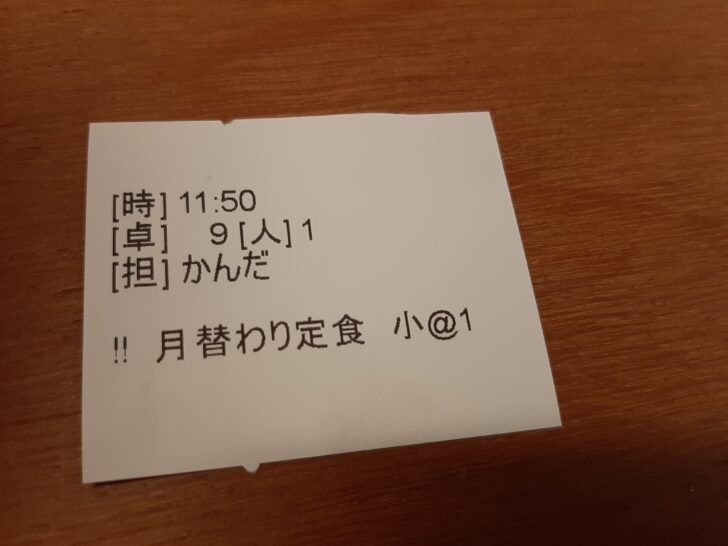 [時] 11:50
[卓]　9 [人] 1
[担] かんだ
!!　月替わり定食　小@1